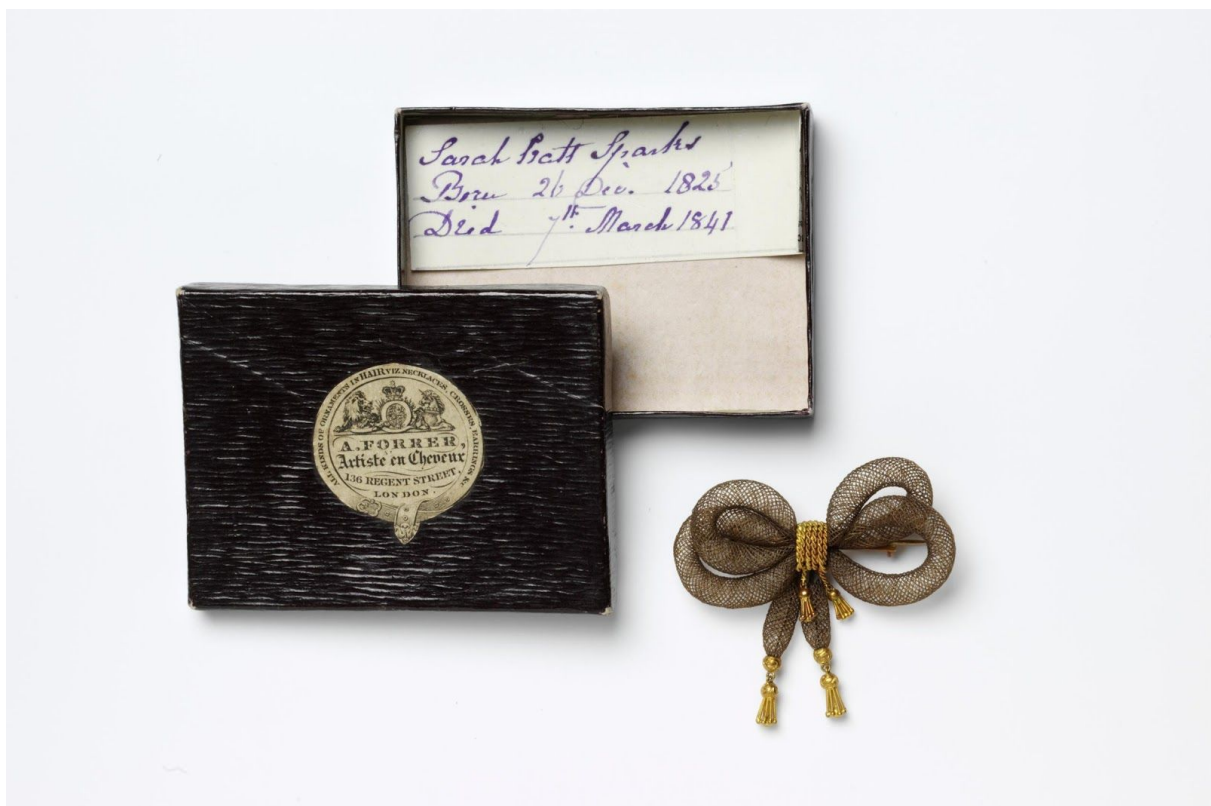 Sarah Pratt Sparks
Born 26 Dec. 1825
Died 7th. March 1841
ALL KINDS OF ORNAMENTS IN HAIR VIZ NECKLACES, CROSSES, EARRINGS &c
A. FORRER,
Artiste en Cheveux
136 REGENT STREET,
LONDON.